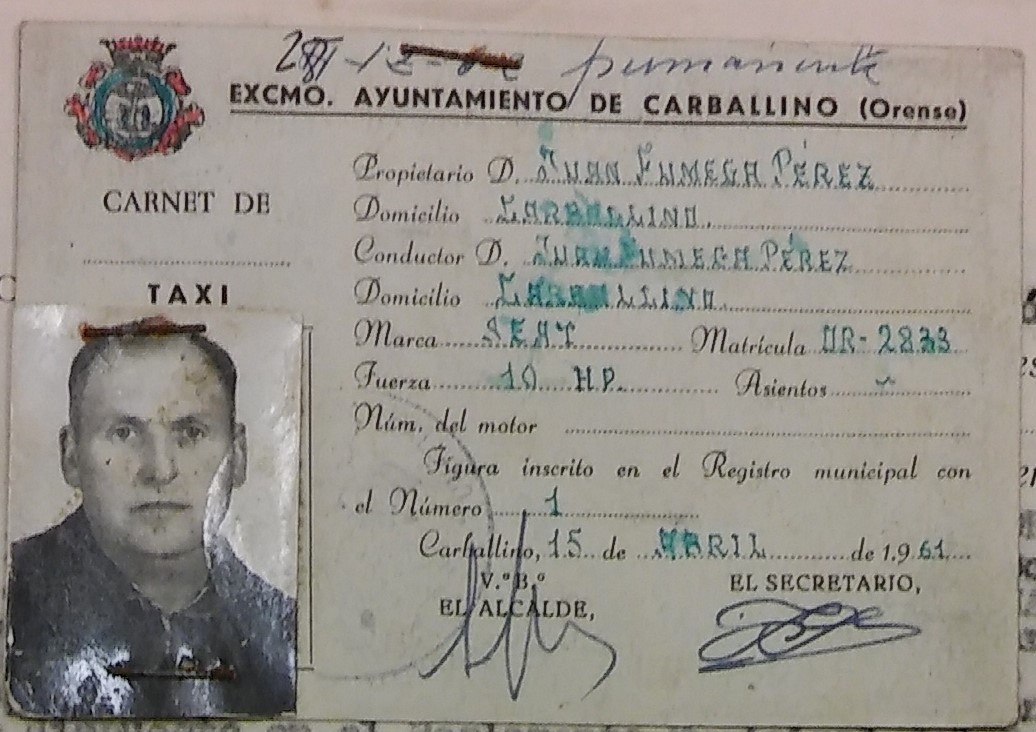 permanente
EXCMO. AYUNTAMIENTO DE CARBALLINO (Orense)
CARNET DE
TAXI
Propietario D. JUAN FUMEGA PÉREZ
Domicilio CARBALLINO.
Conductor D. JUAN FUMEGA PÉREZ
Domicilio CARBALLINO.
Marca SEAT Matrícula OR-2833
Fuerza 10 H.P. Asientos
Núm. del motor
Figura inscrito en el Registro municipal con
el Número 1
Carballino, 15 de ABRIL de 1.961
V.º B.º
EL ALCALDE,
EL SECRETARIO,